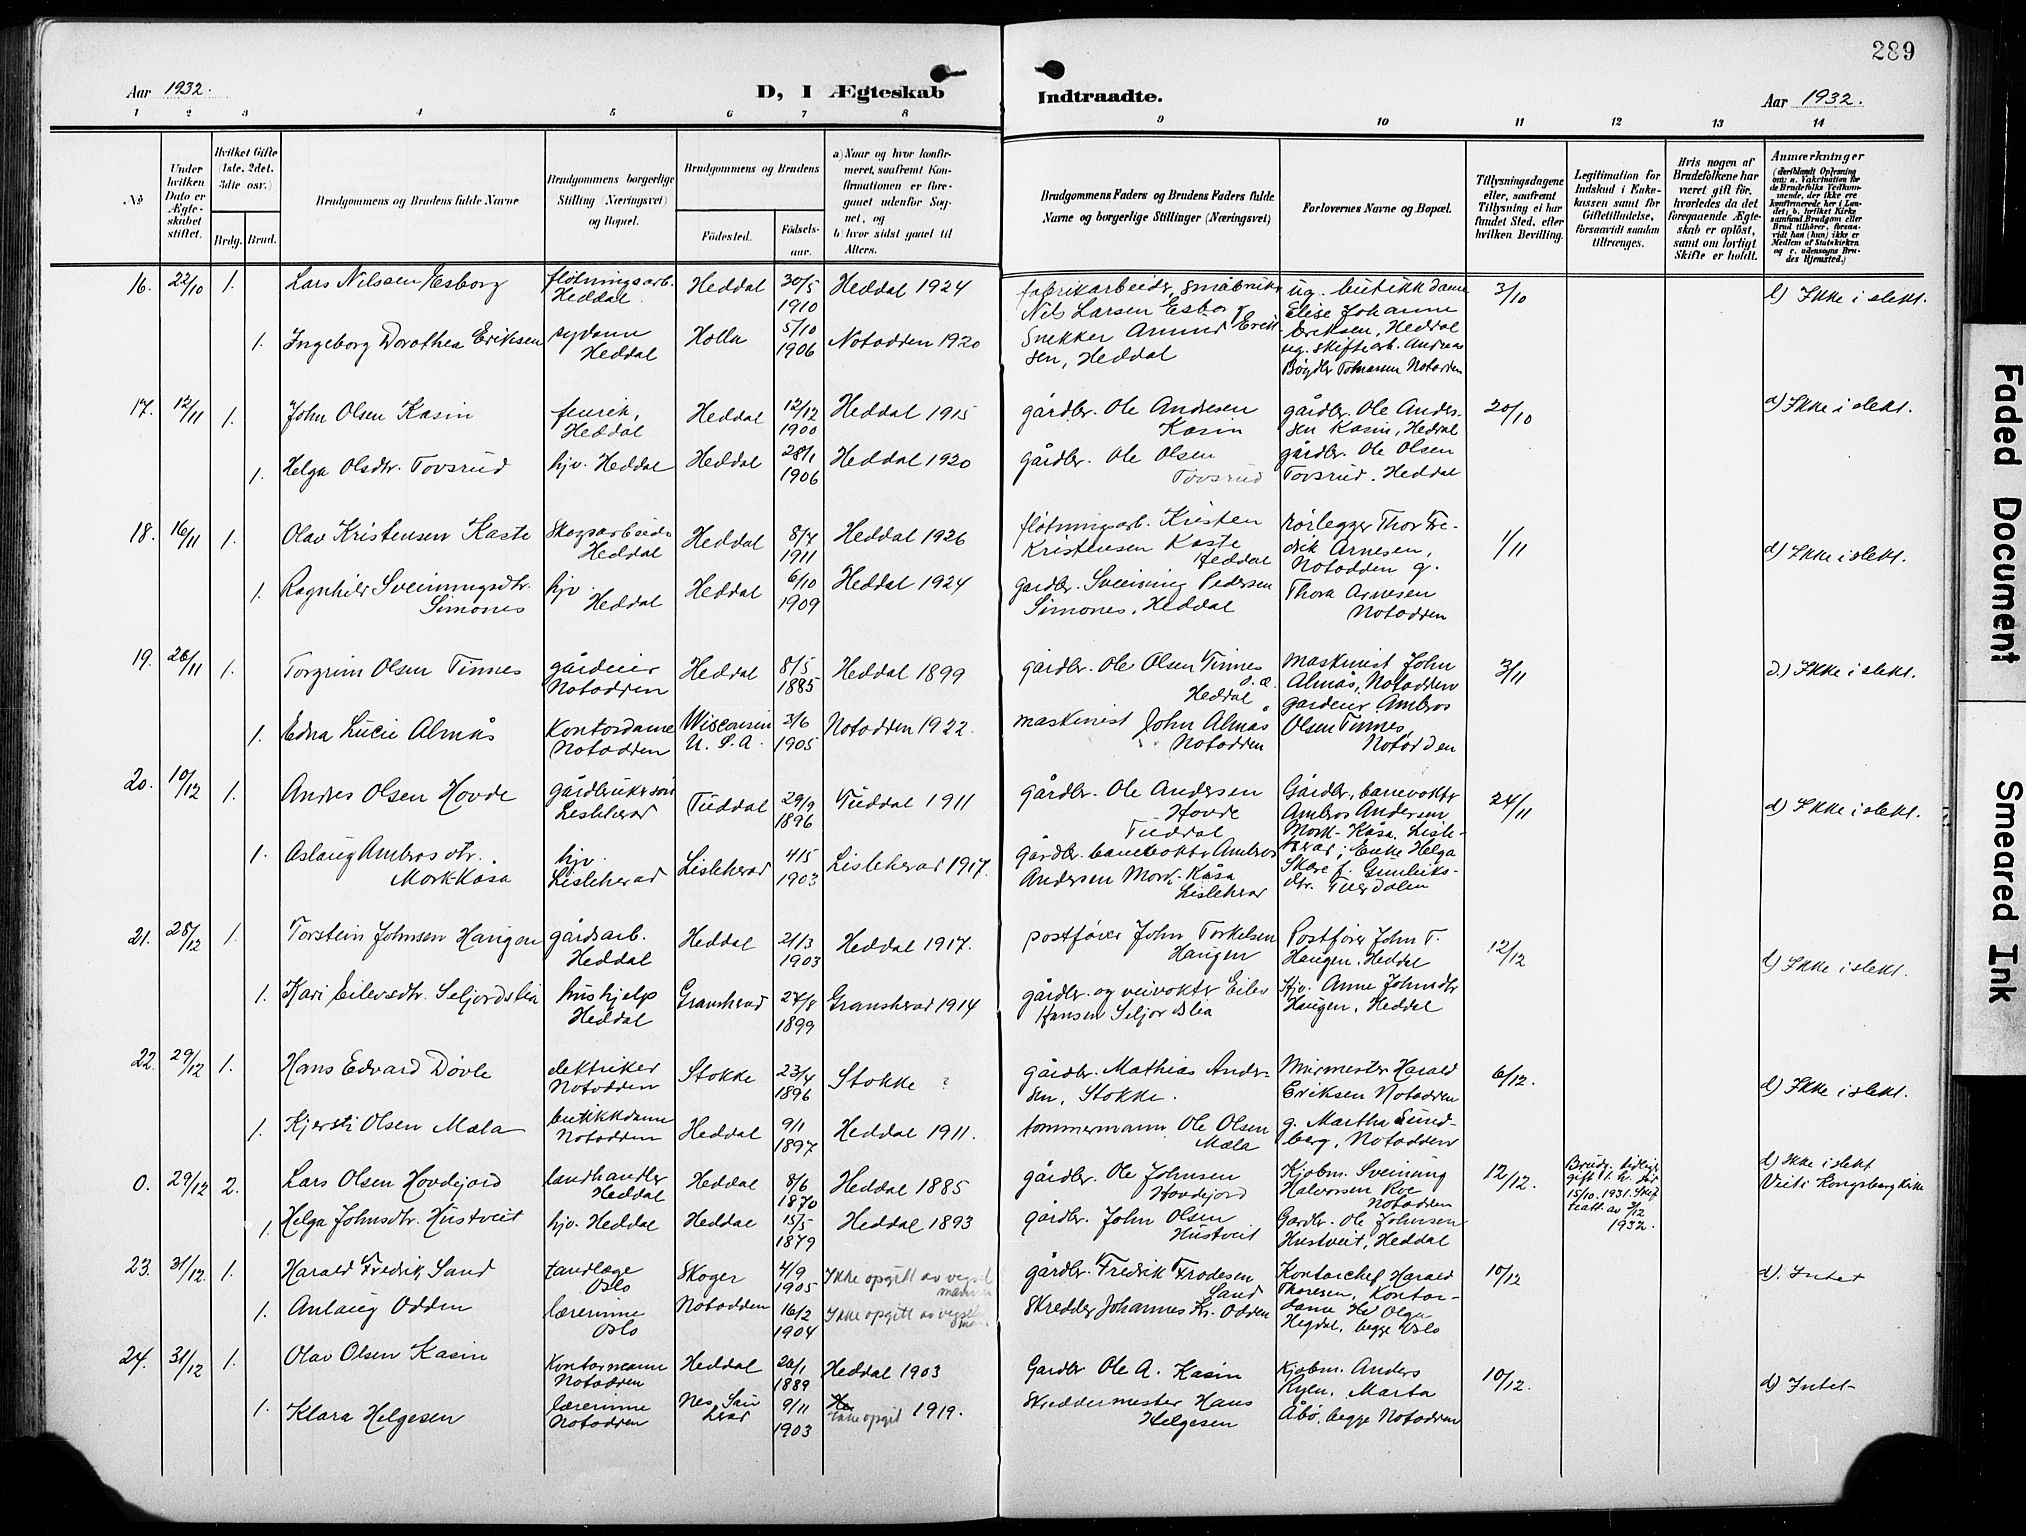 289
Aar 1932.
D, I Ægteskab
Indtraadte.
Aar 1932.
1 2 3 4 5 6 7 8 9 10 11 12 13 14
No
Under hvilken Dato er Ægteskabet stiftet.
Hvilket Gifte (1ste, 2det, 3die osv.)
Brdg. Brud.
Brudgommens og Brudens fulde Navne
Brudgommens borgerlige Stilling (Næringsvei) og Bopæl.
Brudgommens og Brudens
Fødested.
Fødselsaar.
a) Naar og hvor konfirmeret, saafremt Konfirmationen er foregaaet udenfor Sognet, og
b) hvor sidst gaaet til Alters.
Brudgommens Faders og Brudens Faders fulde Navne og borgerlige Stillinger (Næringsvei)
Forlovernes Navne og Bopæl.
Tillysningsdagene eller, saafremt Tillysning ei har fundet Sted, efter hvilken Bevilling.
Legitimation for Indskud i Enkekassen samt for Giftetilladelse, forsaavidt saadan tiltrænges.
Hvis nogen af Brudefolkene har været gift før, hvorledes da det foregaaende Ægteskab er opløst, samt om lovligt Skifte er holdt.
Anmærkninger
16. 22/10 1. Lars Nilssen Esborg fløtningsarb. Heddal. Heddal 30/5 1910 Heddal 1924 fabrikarbeider, småbruker Nils Larsen Esborg ug. butikkdame Elise Johanne Eriksen, Heddal 3/10 d) Ikke i slekt.
1. Ingeborg Dorothea Eriksen sydame Heddal Holla 5/10 1906 Notodden 1920 Snekker Amund Eriksen, Heddal ug. skiftearb. Andreas Bøgder Tomassen Notodden
17. 12/11 1. John Olsen Kasin fenrik, Heddal Heddal 12/12 1900 Heddal 1915 gårdbr. Ole Andresen Kasin gårdbr. Ole Andersen Kasin, Heddal 20/10 d) Ikke i slekt.
1. Helga Olsdtr. Tovsrud hjv. Heddal Heddal 28/1 1906 Heddal 1920 gårdbr. Ole Olsen Tovsrud gårdbr. Ole Olsen Tovsrud. Heddal
18. 16/11 1. Olav Kristensen Kaste Skogsarbeider Heddal Heddal 8/7 1911 Heddal 1926 fløtningsarb. Kristen Kristensen Kaste Heddal rørlegger Thor Fredrik Arnesen, Notodden g. 1/11 d) Ikke i slekt.
1. Ragnhild Sveinungsdtr. Simones hjv. Heddal Heddal 6/10 1909 Heddal 1924 gardbr. Sveinung Pedersen Simones, Heddal Thora Arnesen Notodden
19. 26/11 1. Torgrim Olsen Tinnes gårdeier Notodden Heddal 8/5 1885 Heddal 1899 gårdbr. Ole Olsen Tinnes s. æ. Heddal maskinist John Almås, Notodden 3/11 d.) Ikke i slekt.
1. Edna Lucie Almås Kontordame Notodden Wisconsin U. S. A. 3/6 1905 Notodden 1922. maskinist John Almås Notodden gårdeier Ambros Olsen Tinnes, Notodden
20. 10/12 1. Andres Olsen Hovde gårdbrukersøn Lisleherad Tuddal 29/9 1896 Tuddal 1911 gårdbr. Ole Andersen Hovde Tuddal Gårdbr., banevokter Ambros Andersen Mork-Kåsa, Lisleherad; 24/11 d) Ikke i slekt.
1. Aslaug Ambrosdtr. Mork-Kåsa hjv. Lisleherad Lisleherad 4/5 1903 Lisleherad 1917. gårdbr. banevokter Ambros Andersen Mork-Kåsa Lisleherad Enke Helga Skare f. Gunleiksdtr. Tuddalen
21. 28/12 1. Torstein Johnsen Haugen gårdsarb. Heddal Heddal 21/3 1903 Heddal 1917. postfører John Torkelsen Haugen Postfører John T. Haugen, Heddal 12/12 d) Ikke i slekt.
1. Kari Eilevsdtr. Seljordslia hushjelp Heddal Gransherad 27/8 1899 Gransherad 1914 gårdbr. og veivokter Eilev Hansen Seljordslia Hjv. Anne Johnsdtr Haugen, Heddal
22. 29/12 1. Hans Edvard Døvle elektriker Notodden Stokke 23/4 1896 Stokke ? gårdbr. Mathias Andersen, Stokke. Murmester Harald Eriksen Notodden 6/12. d) Ikke i slekt.
1. Kjersti Olsen Mæla butikkdame Notodden Heddal 9/1 1897 Heddal 1911. tømmermann Ole Olsen Mæla g. Martha Sundberg, Notodden
0. 29/12 2. Lars Olsen Hovdejord landhandler Heddal Heddal 8/6 1870 Heddal 1885 gårdbr. Ole Johnsen Hovdejord Kjøbm. Sveinung Halvorsen Roe Notodden 12/12. Brudg. tidlige gift 1. h. dør 15/10. 1931. Skifteatt. av 7/12 1932. d) Ikke i slekt Viet i Kongsberg Kirke
1. Helga Johnsdtr. Hustveit hjv. Heddal Heddal 15/5 1879 Heddal 1893 gårdbr. John Olsen Hustveit Gardbr. Ole Johnsen Hustveit, Heddal
23. 31/12. 1. Harald Fredrik Sand tandlæge Oslo Skoger 4/9 1905 Ikke opgitt av vigselmannen gårdbr. Fredrik Frodesen Sand Kontorchef Harald Thoresen, 10/12 d). Intet
1. Anlaug Odden lærerinne Oslo Notodden 16/2 1904 Ikke opgitt av vigselsmann Skredder Johannes Kr. Odden Kontordame Olga Hegdal, begge Oslo
24. 31/12 1. Olav Olsen Kasin Kontormann Notodden Heddal 20/1 1889 Heddal 1903 Gårdbr Ole A. Kasin Kjøbm. Anders Ryen, 10/12. d) Intet
1. Klara Helgesen lærerinne Notodden Nes, Sauherad 9/11 1903 Ikke opgit 1919. Skreddermester Hans Helgesen Marta Åbø, begge Notodden
Faded Document
Smeared Ink